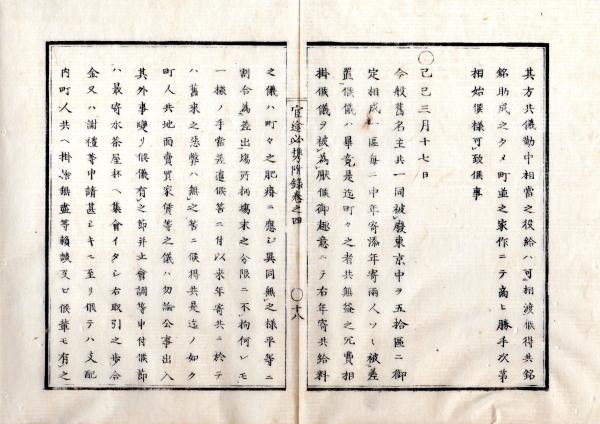 其方共儀勤中相當之役給ハ可相渡候得共銘
銘助成之タメ町並之家作ニテ商ヒ勝手次第
相始候様可致候事
〇
己巳三月十七日
今般舊名主共一同被廢東京中ヲ五拾區ニ御
定相成一區每ニ中年寄添年寄兩人ツヽ被差
置候儀ハ畢竟是迄町々之者共無益之冗費相
掛候儀ヲ被為厭候御趣意ニテ右年寄共給料
官途必携附錄卷之四
〇十八
之儀ハ町々之肥瘠ニ應シ異同無之様平等ニ
割合為差出場所柄場末之分限ニ不拘何レモ
一様ノ手當差遣候筈ニ付以来年寄共ニ於テ
ハ舊来之惡弊ハ無之筈ニ候得共是迄ノ如ク
町人共地面賣買家賃等之儀ハ勿論公事出入
其外事變リ候儀有之節并止會調等申付候節
ハ最寄水茶屋杯ヘ集會イタシ右取引之步合
金又ハ謝禮等申請甚シキニ至リ候テハ支配
内町人共ヘ掛ケ無盡等賴談及ヒ候輩モ有之